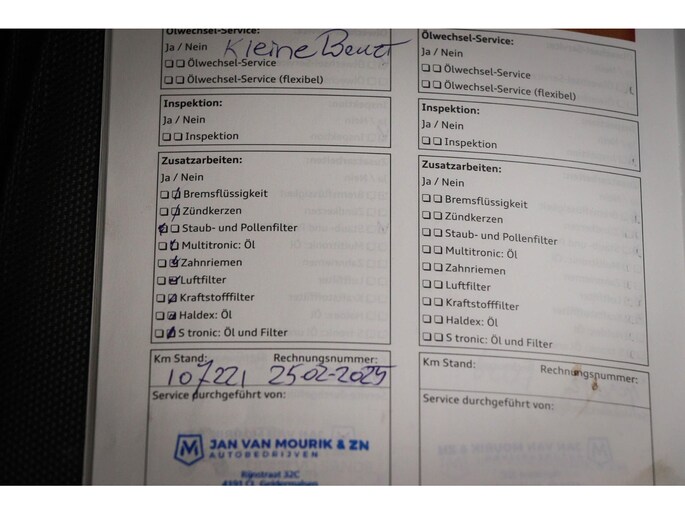 Ölwechsel-Service:
Ja / Nein Kleine Beurt
Ölwechsel-Service
Ölwechsel-Service (flexibel)
Inspektion:
Ja / Nein
Inspektion
Zusatzarbeiten:
Ja / Nein
Bremsflüssigkeit
Zündkerzen
Staub- und Pollenfilter
Multitronic: Öl
Zahnriemen
Luftfilter
Kraftstofffilter
Haldex: Öl
S tronic: Öl und Filter
Km Stand: Rechnungsnummer:
107221 25-02-2025
Service durchgeführt von:
JAN VAN MOURIK & ZN
AUTOBEDRIJVEN
Rijnstraat 32C
4191 CL Geldermalsen
Ölwechsel-Service:
Ja / Nein
Ölwechsel-Service
Ölwechsel-Service (flexibel)
Inspektion:
Ja / Nein
Inspektion
Zusatzarbeiten:
Ja / Nein
Bremsflüssigkeit
Zündkerzen
Staub- und Pollenfilter
Multitronic: Öl
Zahnriemen
Luftfilter
Kraftstofffilter
Haldex: Öl
S tronic: Öl und Filter
Km Stand: Rechnungsnummer:
Service durchgeführt von: